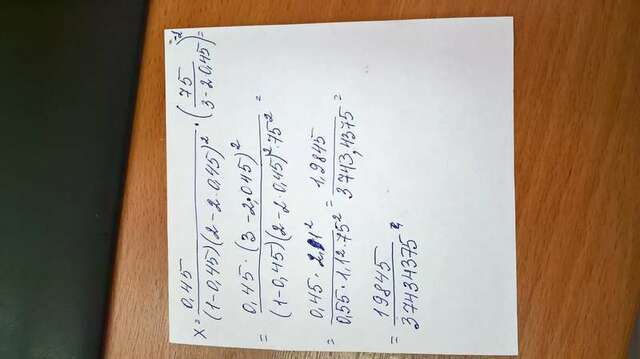 x = \frac{0,45}{(1-0,45)(2-2·0,45)^2} · (\frac{75}{3-2·0,45})^{-2} =
= \frac{0,45·(3-2·045)^2}{(1-0,45)(2-2·0,45)^2·75^2} =
= \frac{0,45·2,1^2}{0,55·1,12·75^2} = \frac{1,9845}{3743,4375} =
= \frac{19845}{37434375}